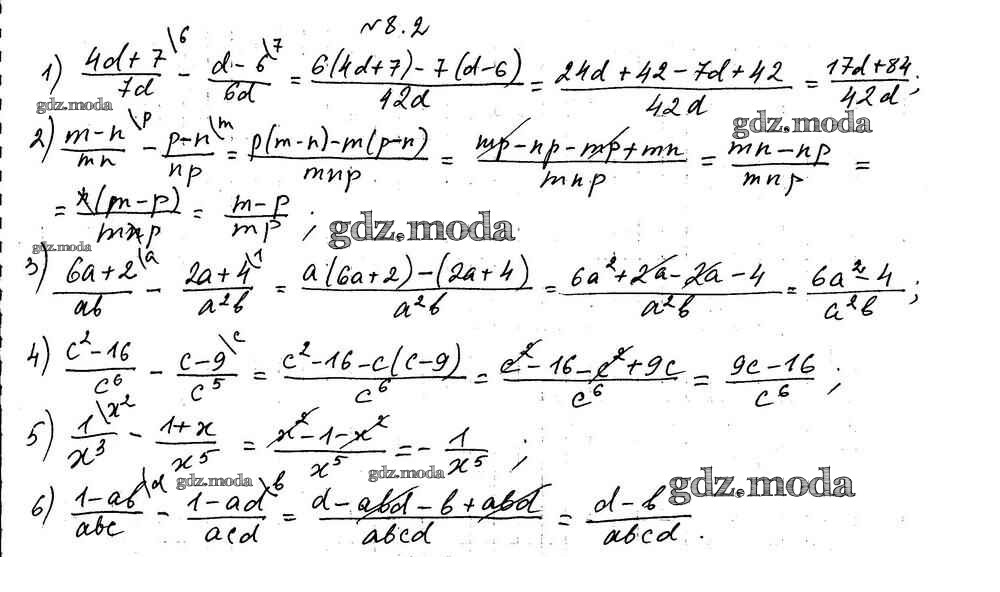 №8.2
1) \frac{4d+7^{\backslash 6}}{7d} - \frac{d-6^{\backslash 7}}{6d} = \frac{6(4d+7)-7(d-6)}{42d} = \frac{24d+42-7d+42}{42d} = \frac{17d+84}{42d};
gdz.moda
gdz.moda
2) \frac{m-n^{\backslash p}}{mn} - \frac{p-n^{\backslash m}}{np} = \frac{p(m-n)-m(p-n)}{mnp} = \frac{mp-np-mp+mn}{mnp} = \frac{mn-np}{mnp} =
= \frac{n(m-p)}{mnp} = \frac{m-p}{mp};
gdz.moda
gdz.moda
3) \frac{6a+2^{\backslash a}}{ab} - \frac{2a+4^{\backslash 1}}{a^2b} = \frac{a(6a+2)-(2a+4)}{a^2b} = \frac{6a^2+2a-2a-4}{a^2b} = \frac{6a^2-4}{a^2b};
4) \frac{c^2-16}{c^6} - \frac{c-9^{\backslash c}}{c^5} = \frac{c^2-16-c(c-9)}{c^6} = \frac{c^2-16-c^2+9c}{c^6} = \frac{9c-16}{c^6};
5) \frac{1^{\backslash x^2}}{x^3} - \frac{1+x}{x^5} = \frac{x^2-1-x^2}{x^5} = -\frac{1}{x^5};
gdz.moda
gdz.moda
gdz.moda
6) \frac{1-ab^{\backslash d}}{abc} - \frac{1-ad^{\backslash b}}{acd} = \frac{d-abd-b+abd}{abcd} = \frac{d-b}{abcd}.